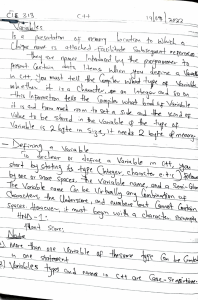 CIE 313 C++ 19/09/2022
Variables
Is a presentation of memory location to which a
unique name is attached, facilitate subsequent reference
they are power introduced by the programmer to
present Certain data items when you define a Variable
in C++, you must tell the Compiler what type of Variable
whether it is a Character, an integer and so on
this information tells the Compiler what kind of Variable
it is and how much room to set a side and the kind of
Value to be stored in the Variable if the type of
Variable is 2 bytes in size, it needs 2 bytes of memory
Defining a Variable
To declare or define a Variable in C++, you
start by stating its type (integer, character etc.) followed
by one or more spaces, the Variable name, and a Semi-Colon
The Variable name Can be Virtually any Combination of
Characters, the Underscore, and numbers but Cannot Contain
spaces, however, it must begin with a character, example
int
Short
Note
1) More than one Variable of the same type Can be
in one statement
2) Variables type and names in C++ are Case-Sensitive